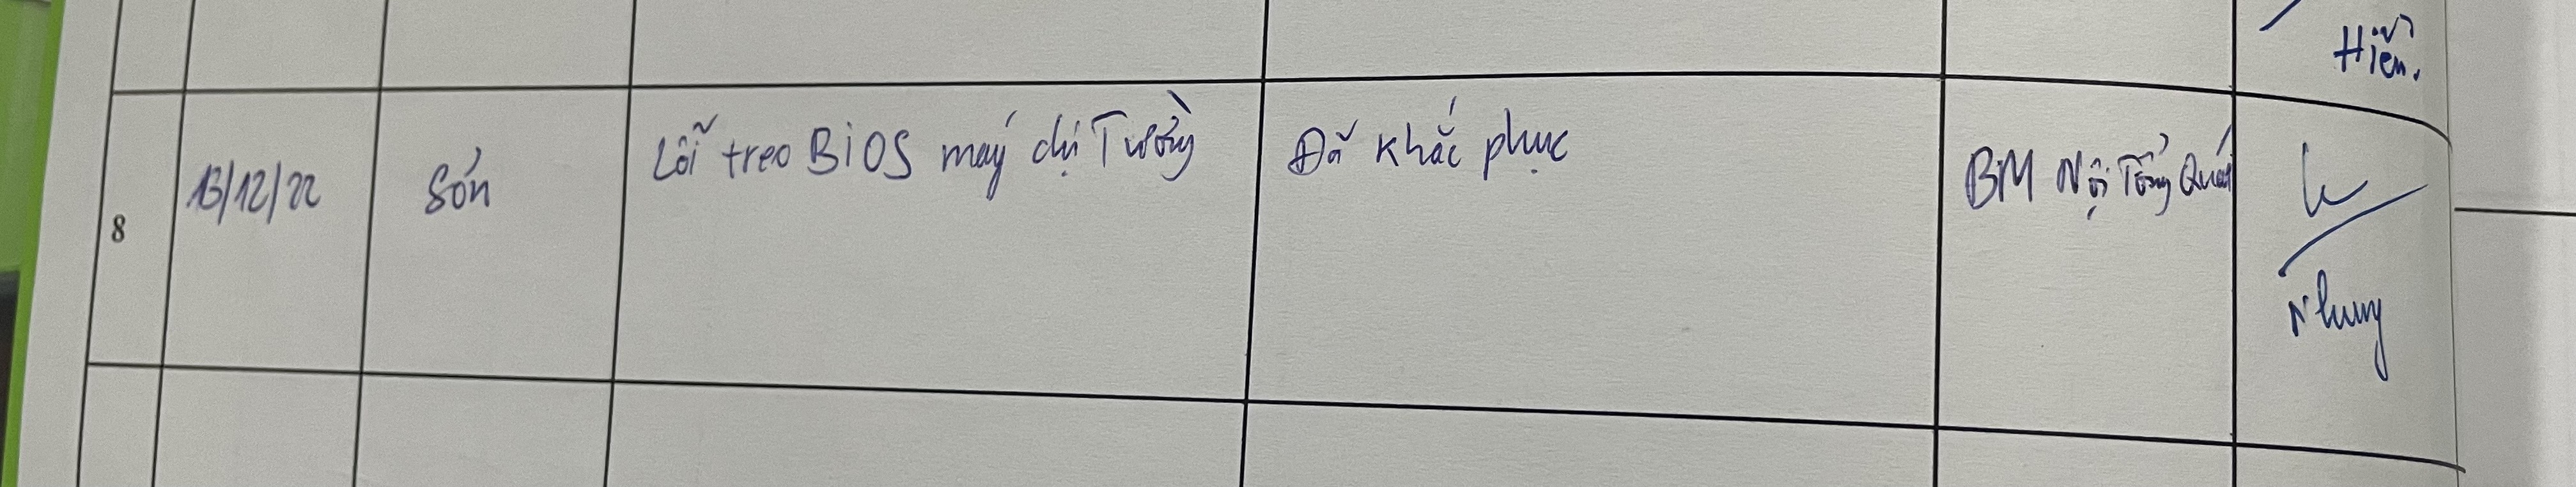 Hiền.
8
13/12/22
Sơn
Lỗi treo BiOS máy chị Tường
Đã khắc phục
BM Nội Tổng Quát
Nhung